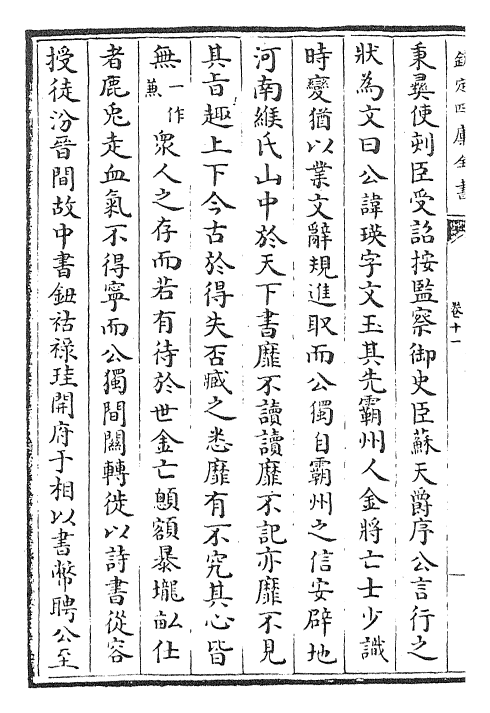 欽定四庫全書
卷十一
秉彛使刻臣受詔按監察御史臣蘇天爵序公言行之
狀為文曰公諱瑛字文玉其先霸州人金將亡士少識
時變猶以業文辭規進取而公獨自霸州之信安辟地
河南緱氏山中於天下書靡不讀讀靡不記亦靡不見
其旨趣上下今古於得失否臧之悉靡有不究其心皆
無一作兼衆人之存而若有待於世金亡顖額暴壠畝仕
者鹿兎走血氣不得寧而公獨間關轉徙以詩書從容
授徒汾晉間故中書鈕祜祿珪開府于相以書幣聘公至